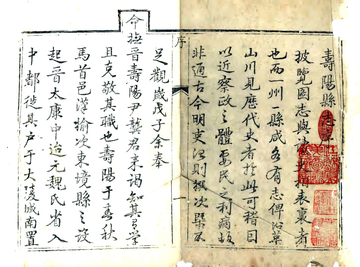 壽陽縣志序
披覽圖志與史相表裏者
也而一州一縣咸各有志俾沿革
山川見歷代史者於此可稽因
以近察政之體要民之利病故
非通古今明吏治則視次槩不
足觀歲戊子余奉
命撫晉壽陽尹龔君來謁知其力學
且克敬其職也壽陽于春秋
馬首邑漢榆次東境縣之設
起晉太康中迨元魏氏省入
中都徙其戶于大陵城南置
序